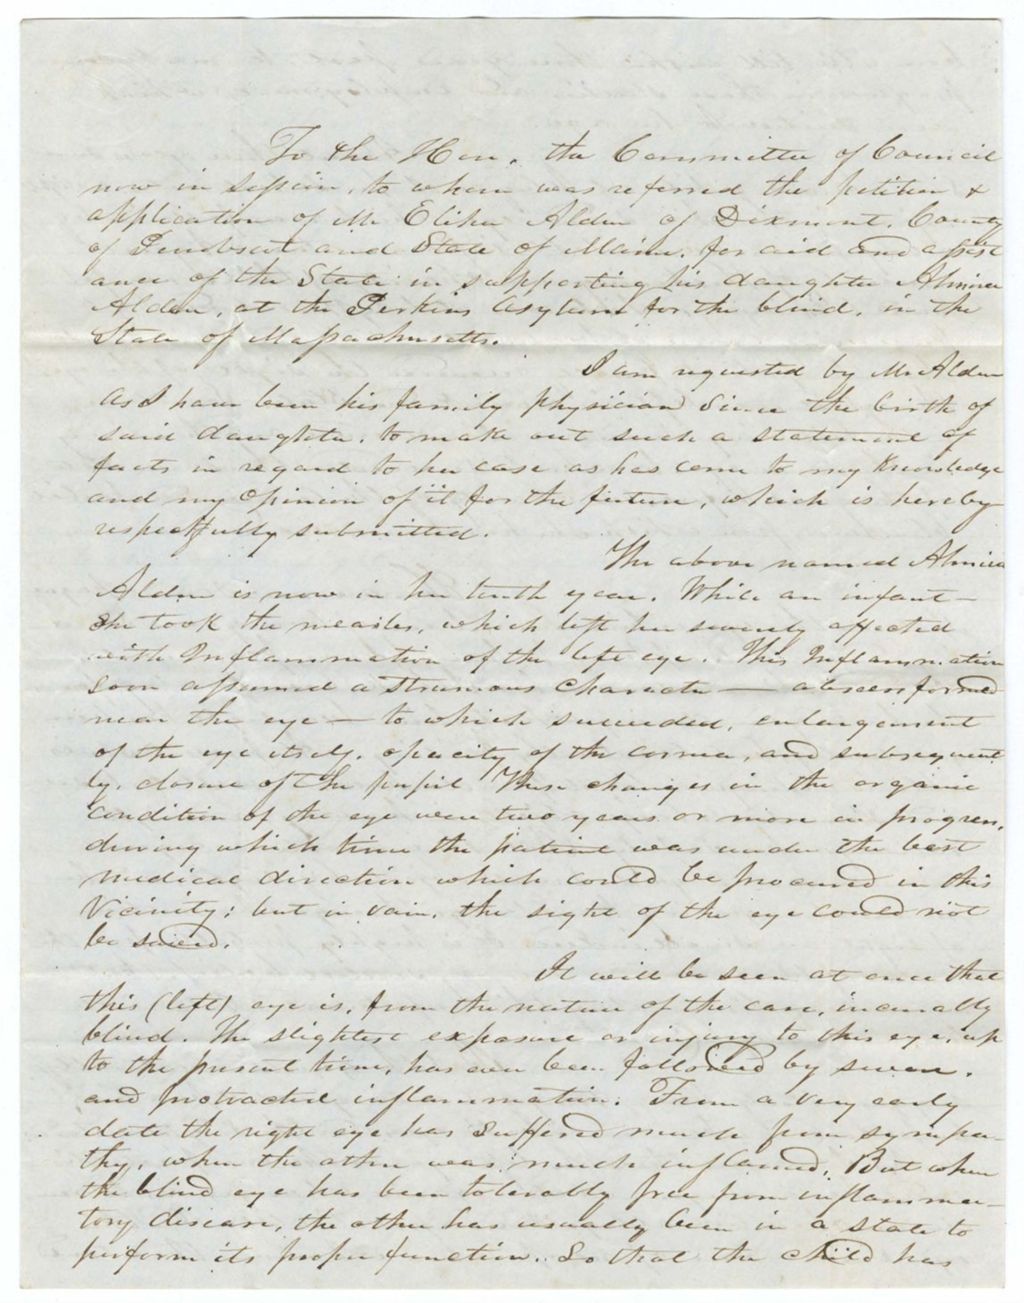 To the Hon. the Committee of Council
now in session, to whom was referred the petition &
application of Mr Elihu Alden of Dixmont, County
of Penobscot and State of Maine, for aid and assist
ance of the State in supporting his daughter Almira
Alden, at the Perkins Asylum for the blind, in the
State of Massachusetts.
I am requested by Mr Alden
as I have been his family physician since the birth of
said daughter, to make out such a statement of
facts in regard to her case as has come to my knowledge
and my opinion of it for the future, which is hereby
respectfully submitted.
The above named Almira
Alden is now in her tenth year. While an infant—
she took the measles, which left her severely affected
with Inflammation of the left eye. This Inflammation
soon assumed a Strumous character — abscess formed
near the eye — to which succeeded, enlargement
of the eye itself, opacity of the cornea, and subsequent
ly, closure of the pupil These changes in the organic
condition of the eye were two years or more in progress,
during which time the patient was under the best
medical direction which could be procured in this
Vicinity; but in vain, the sight of the eye could not
be saved.
It will be seen at once that
this (left) eye is, from the nature of the case, incurably
blind. The slightest exposure or injury to this eye, up
to the present time, has ever been followed by severe,
and protracted inflammation. From a very early
date the right eye has suffered much from sympa-
thy, when the other was much inflamed. But when
the blind eye has been tolerably free from inflamma-
tory disease, the other has usually been in a state to
perform its proper function. So that the child has